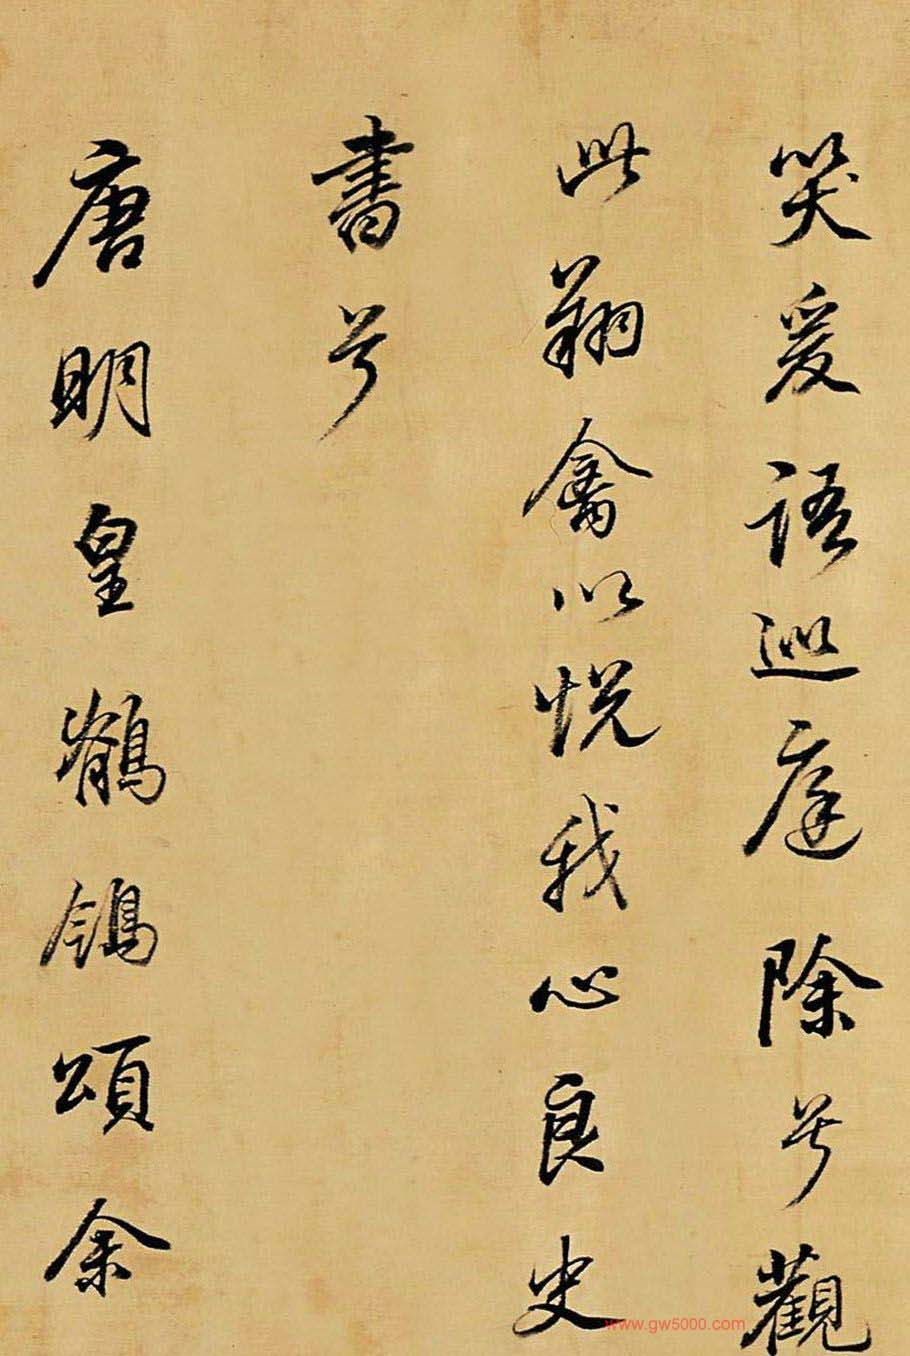 笑爰語巡庭除兮觀
此翔禽以悅我心良史
書兮
唐明皇鶺鴒頌余
www.gw5000.com